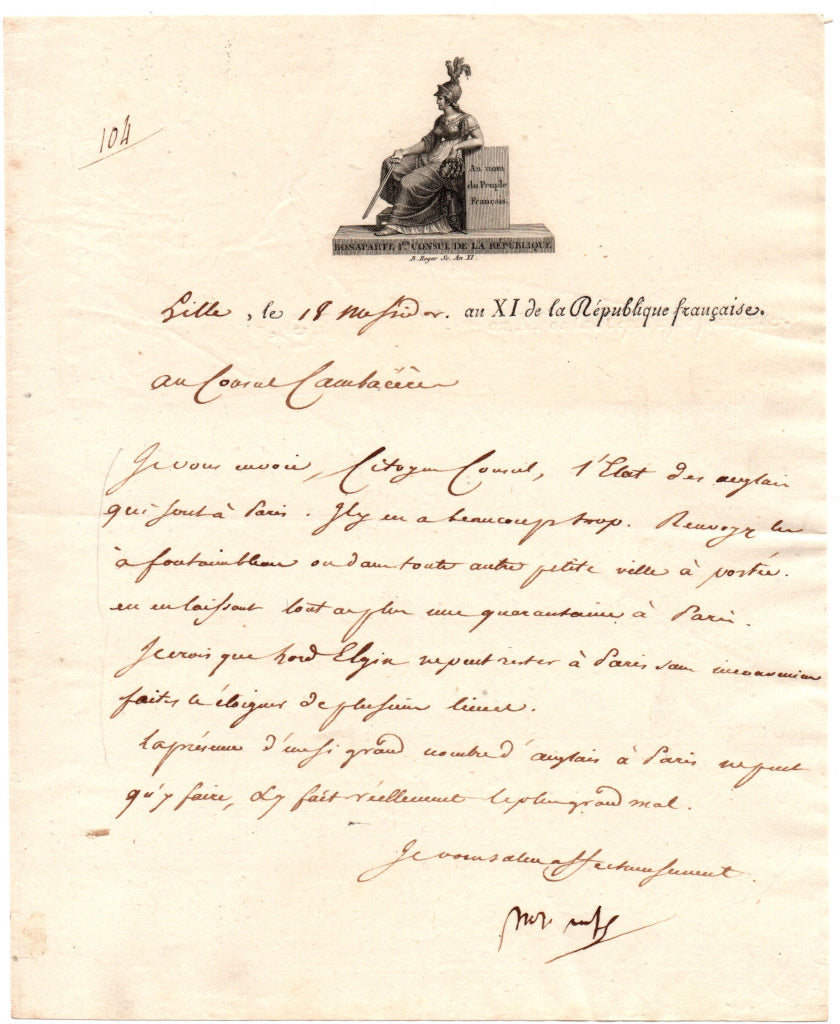 104
Au nom
du Peuple
Français.
BONAPARTE Ier CONSUL DE LA RÉPUBLIQUE
B. Roger Sc. An XI.
Lille, le 18 Messidor. an XI de la République française.
au Consul Cambacérès
Je vous envoie, Citoyen Consul, l'Etat des anglais
qui sont à Paris. Il y en a beaucoup trop. Renvoyez les
à fontainebleau ou dans toute autre petite ville à portée.
en en laissant tout au plus une quarantaine à Paris.
Je crois que Lord Elgin ne peut rester à Paris sans inconvenien
faites le éloigner de plusieurs lieues.
la présence d'un si grand nombre d'anglais à Paris ne peut
qu'y faire, & y fait réellement le plus grand mal.
Je vous salue affectueusement.